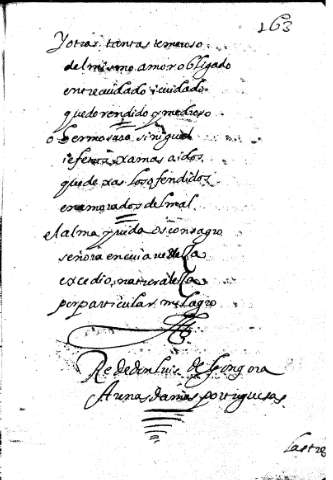 163
Y otras tantas temeroso
del mismo amor obligado
entre cuidado i cuidado
quedo rendido y medroso
o hermosura sin igual
jamas a idos
que dexas los ofendidos
enamorados del mal
el alma y vida os consagro
señora en cuia
excedio naturaleza
por particular milagro
Re de don Luis de Gongora
A unas damas portuguesas